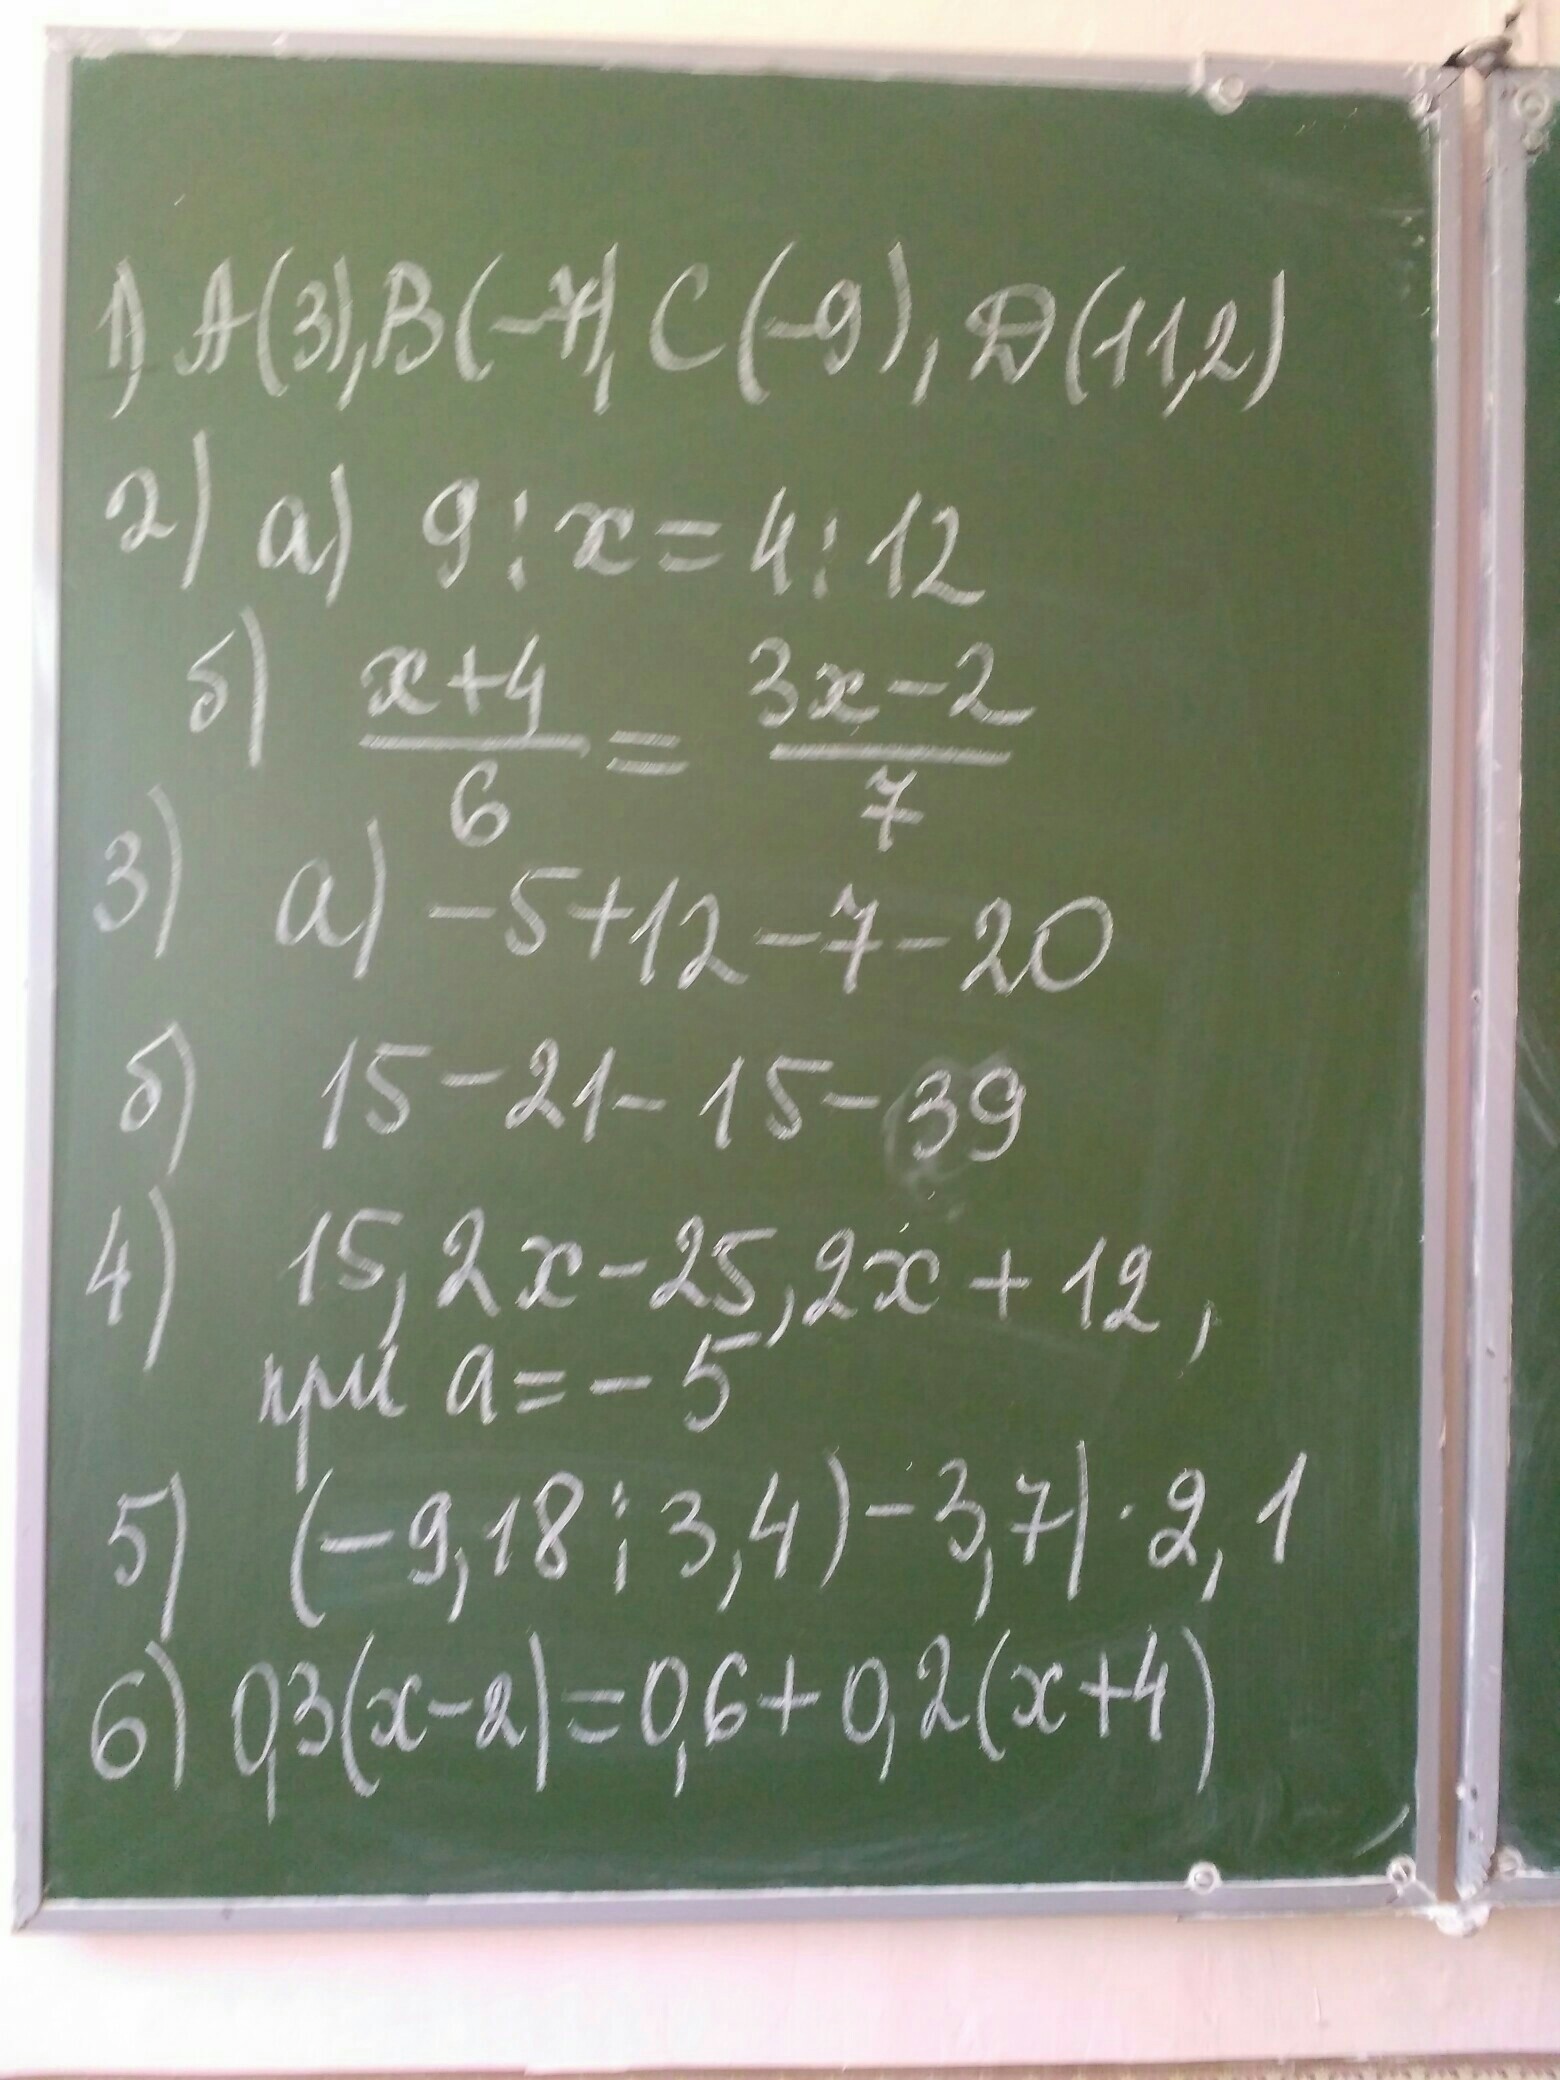 1) A(3), B(-7), C(-9), D(11,2)
2) а) 9 : x = 4 : 12
б) x+4/6 = 3x-2/7
3) а) -5+12-7-20
б) 15-21-15-39
4) 15,2x-25,2x+12,
при a=-5
5) (-9,18:3,4)-3,7)·2,1
6) 0,3(x-2)=0,6+0,2(x+4)